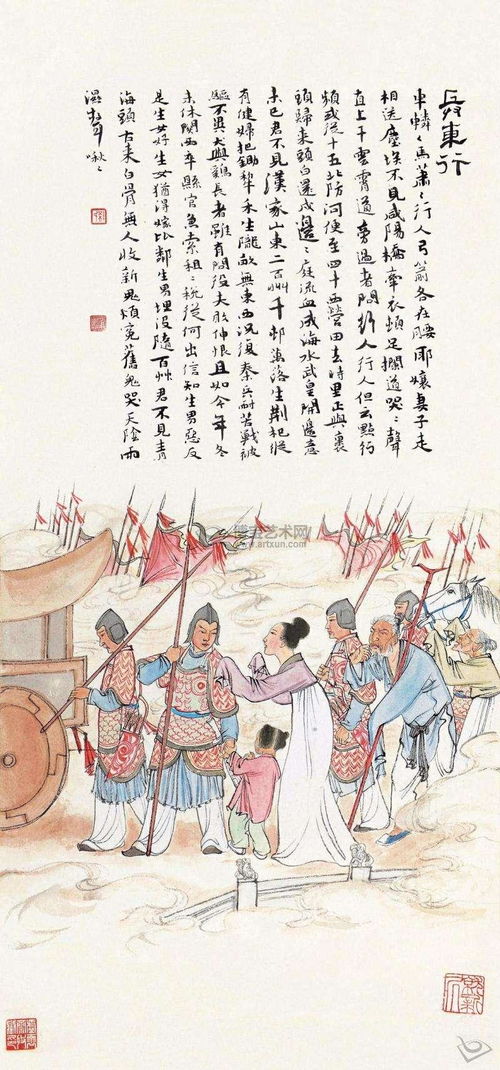 兵車行
車轔〻馬蕭〻行人弓箭各在腰耶孃妻子走
相送塵埃不見咸陽橋牽衣頓足攔道哭〻聲
直上干雲霄道旁過者問行人行人但云點行
頻或從十五北防河便至四十西營田去時里正與裹
頭歸來頭白還戍邊〻庭流血成海水武皇開邊意
未已君不見漢家山東二百州千邨萬落生荆杞縱
有健婦把鋤犂禾生隴畝無東西況復秦兵耐苦戰被
驅不異犬與鷄長者雖有問役夫敢伸恨且如今年冬
未休関西卒縣官急索租〻稅從何出信知生男惡反
是生女好生女猶得嫁比鄰生男埋没隨百艸君不見青
海頭古來白骨無人收新鬼煩冤舊鬼哭天陰雨
濕聲啾〻
博宝艺术网
www.artxun.com